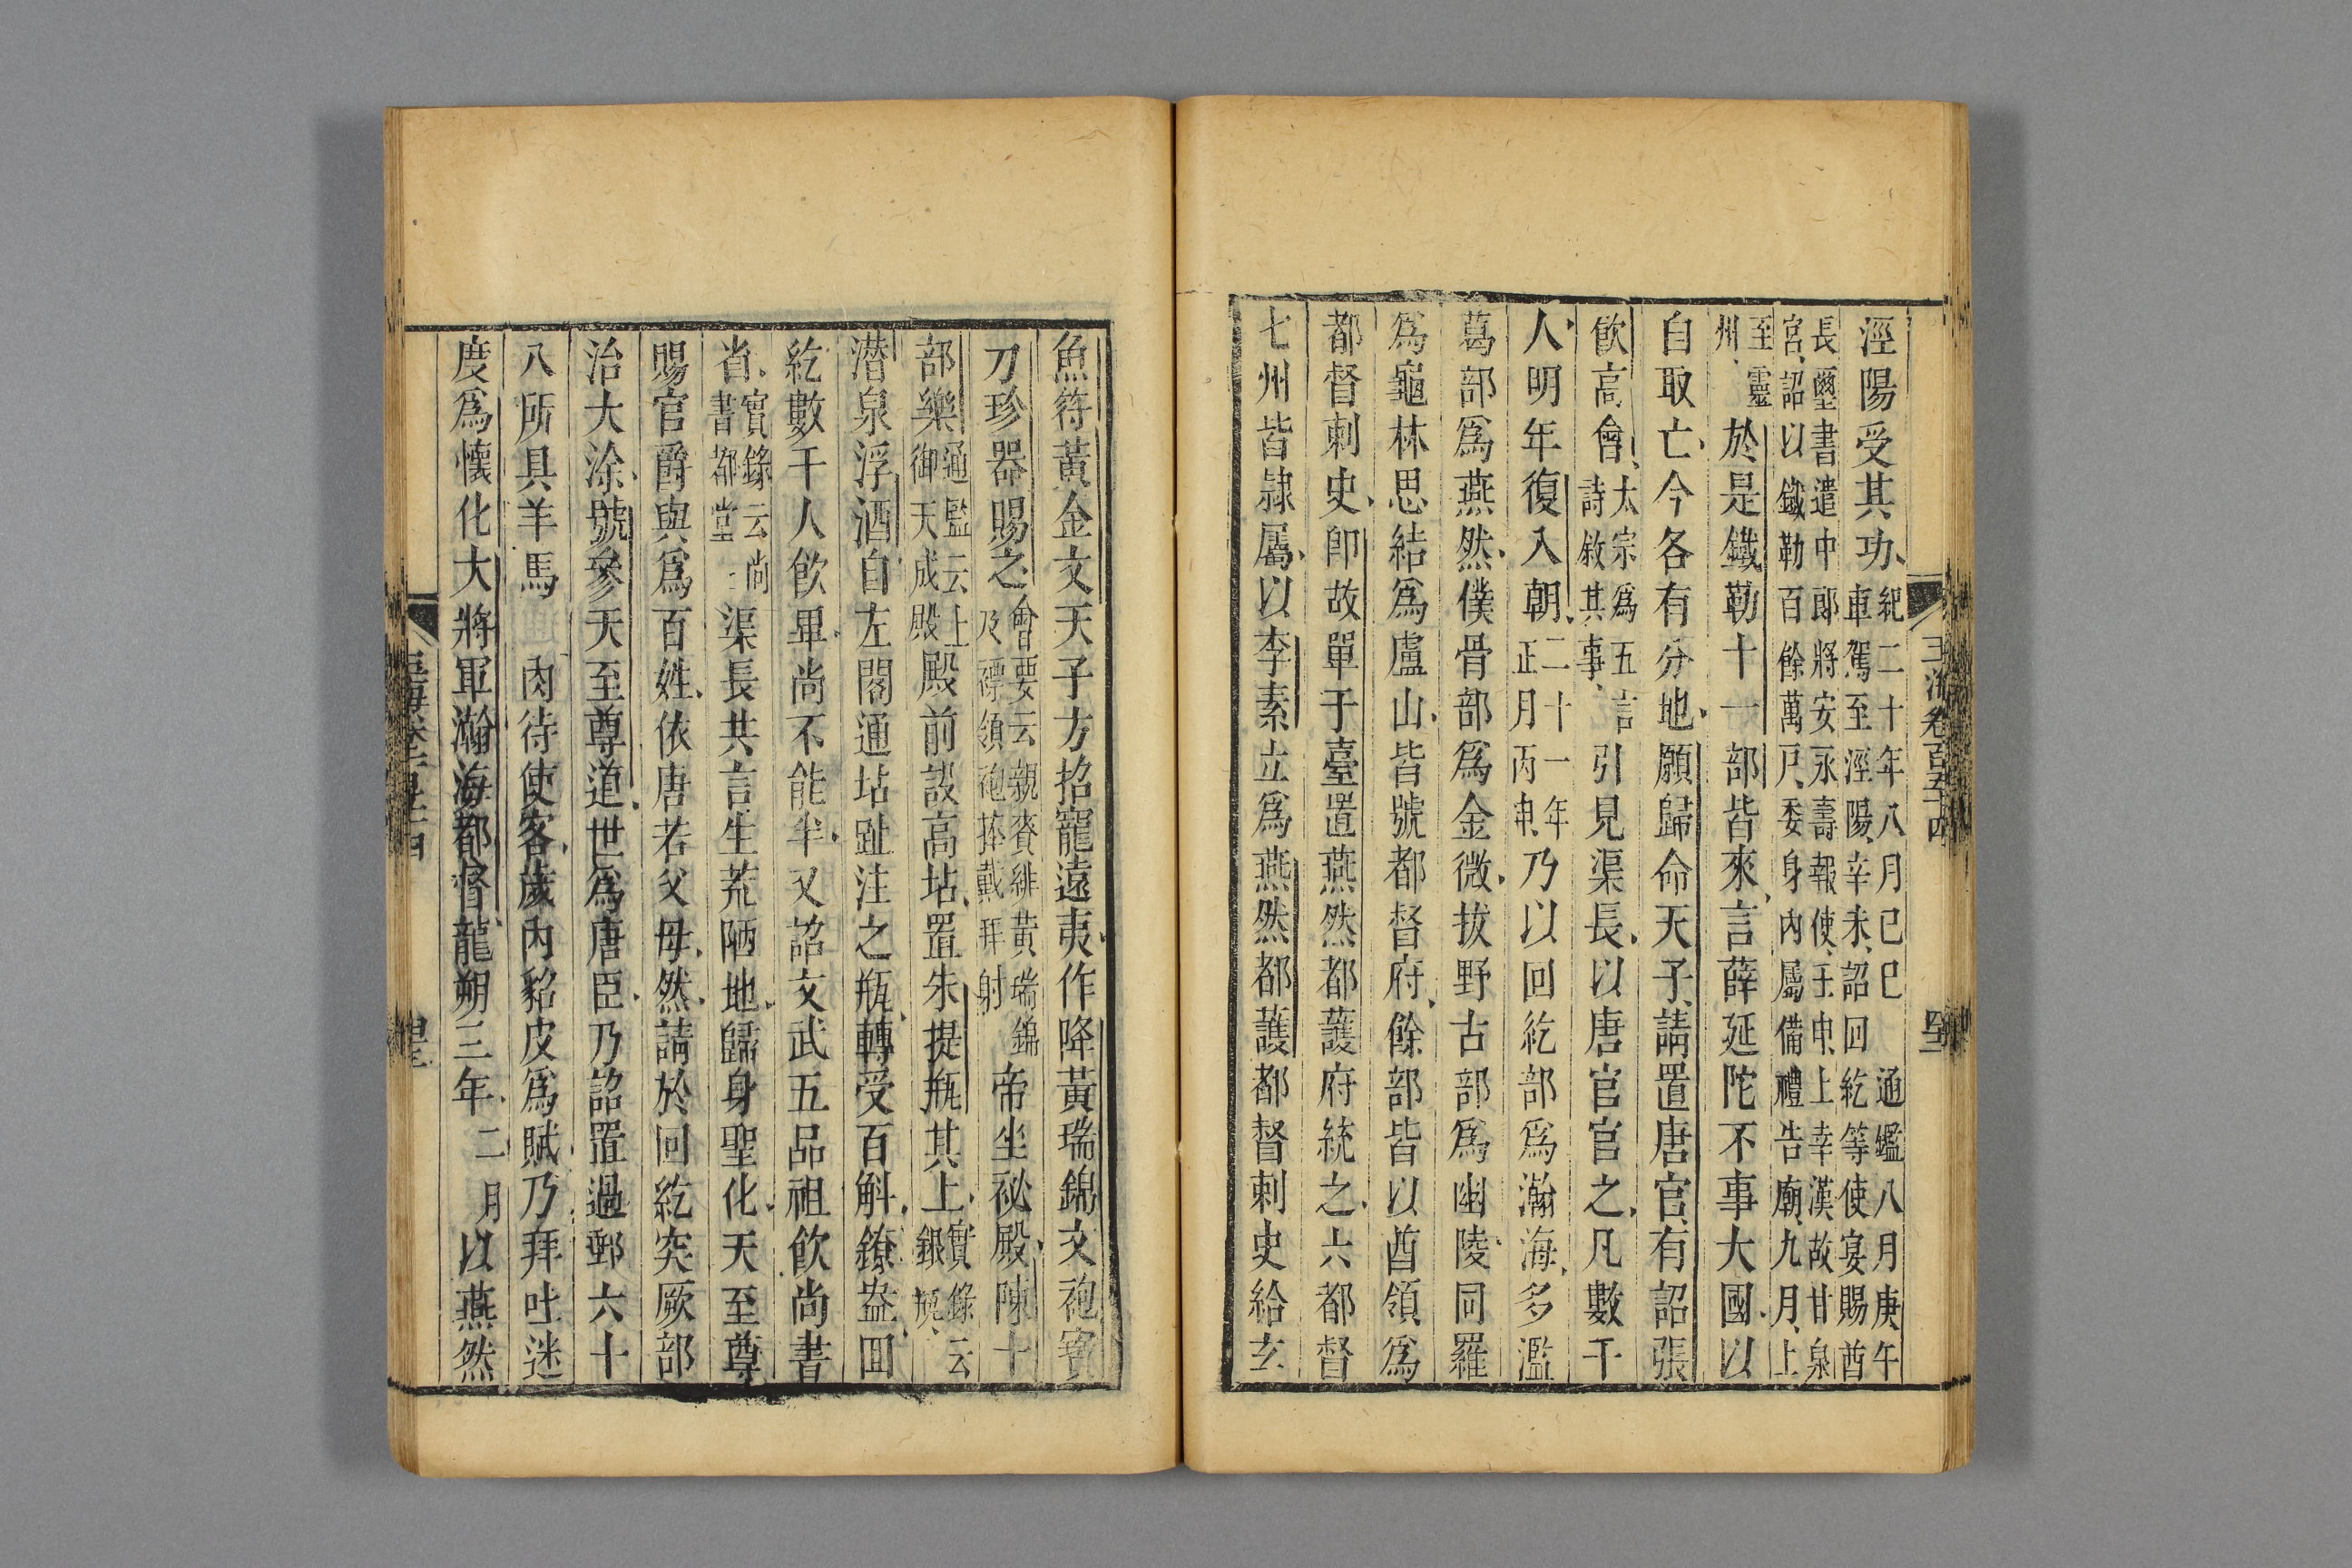 玉海卷百五十四
涇陽受其功紀二十年八月己巳 通鑑八月庚午
車駕至涇陽辛未詔回紇等使宴賜酋
長璽書遣中郎將安永壽報使壬申上幸漢故甘泉
宮詔以鐵勒百餘萬戶委身內屬備禮告廟九月上
至靈州於是鐵勒十一部皆來言薛延陀不事大國以
自取亡今各有分地願歸命天子請置唐官有詔張
飲高會太宗爲五言詩敘其事引見渠長以唐官官之凡數千
人明年復入朝二十一年正月丙申乃以回紇部爲瀚海多濫
葛部爲燕然僕骨部爲金微拔野古部爲幽陵同羅
爲龜林思結爲盧山皆號都督府餘部皆以酋領爲
都督刺史卽故單于臺置燕然都護府統之六都督
七州皆隷屬以李素立爲燕然都護都督刺史給玄
魚符黃金文天子方招寵遠夷作降黃瑞錦文袍寶
刀珍器賜之會要云親賚緋黃瑞錦及褾領袍捧戴拜射帝坐祕殿陳十
部樂通鑑云上御天成殿殿前設高坫置朱提瓶其上實錄云銀瓶
潛泉浮酒自左閣通坫趾注之瓶轉受百斛鐐盎回
紇數千人飲畢尚不能半又詔文武五品祖飲尚書
省實錄云尚書都堂渠長共言生荒陋地歸身聖化天至尊
賜官爵與爲百姓依唐若父母然請於回紇突厥部
治大涂號參天至尊道世爲唐臣乃詔置過郵六十
八所具羊馬 肉待使客歲內貂皮爲賦乃拜吐迷
度爲懷化大將軍瀚海都督龍朔三年二月以燕然